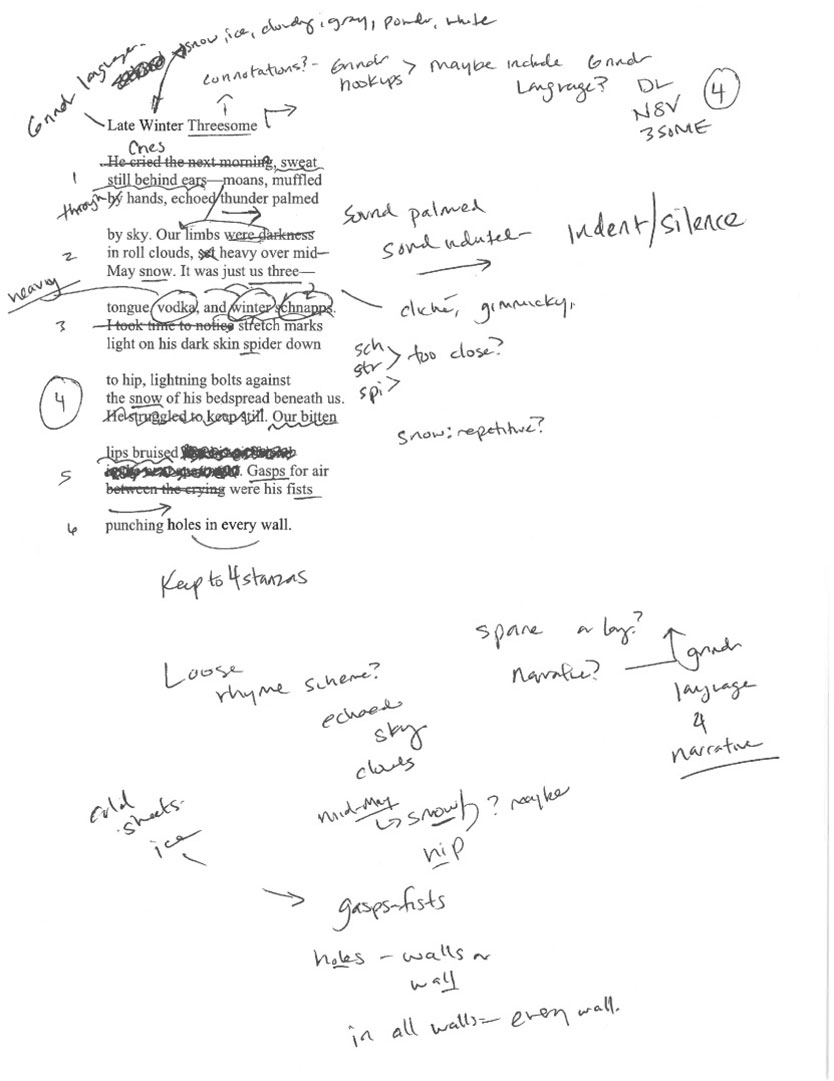 snow, ice, cloudy, gray, powder, white
Grindr language
connotations? - Grindr hookups > maybe include Grindr Language?
DL
N8V
3SOME
4
Late Winter Threesome
Cries
He cried the next morning, sweat
1
still behind ears—moans, muffled
through
by hands, echoed thunder palmed
Sound palmed
by sky. Our limbs were darkness
Indent/silence
2
in roll clouds, set heavy over mid-
May snow. It was just us three—
heavy
tongue, vodka, and winter schnapps.
2
cliché, gimmicky,
3
I took time to notice stretch marks
light on his dark skin spider down
sch
str > too close?
spi >
to hip, lightning bolts against
4
the snow of his bedspread beneath us.
He struggled to keep still. Our bitten
snow: repetitive?
lips bruised
5
. Gasps for air
between the crying were his fists
6
punching holes in every wall.
Keep to 4 stanzas
spare or long?
narrative?
grindr
language
4
narrative
Loose
rhyme scheme?
echoed
sky
clouds
mid-May
snow ? maybe
nip
cold
sheets-
ice
gasps-fists
holes - walls or
wall
in all walls- every wall.